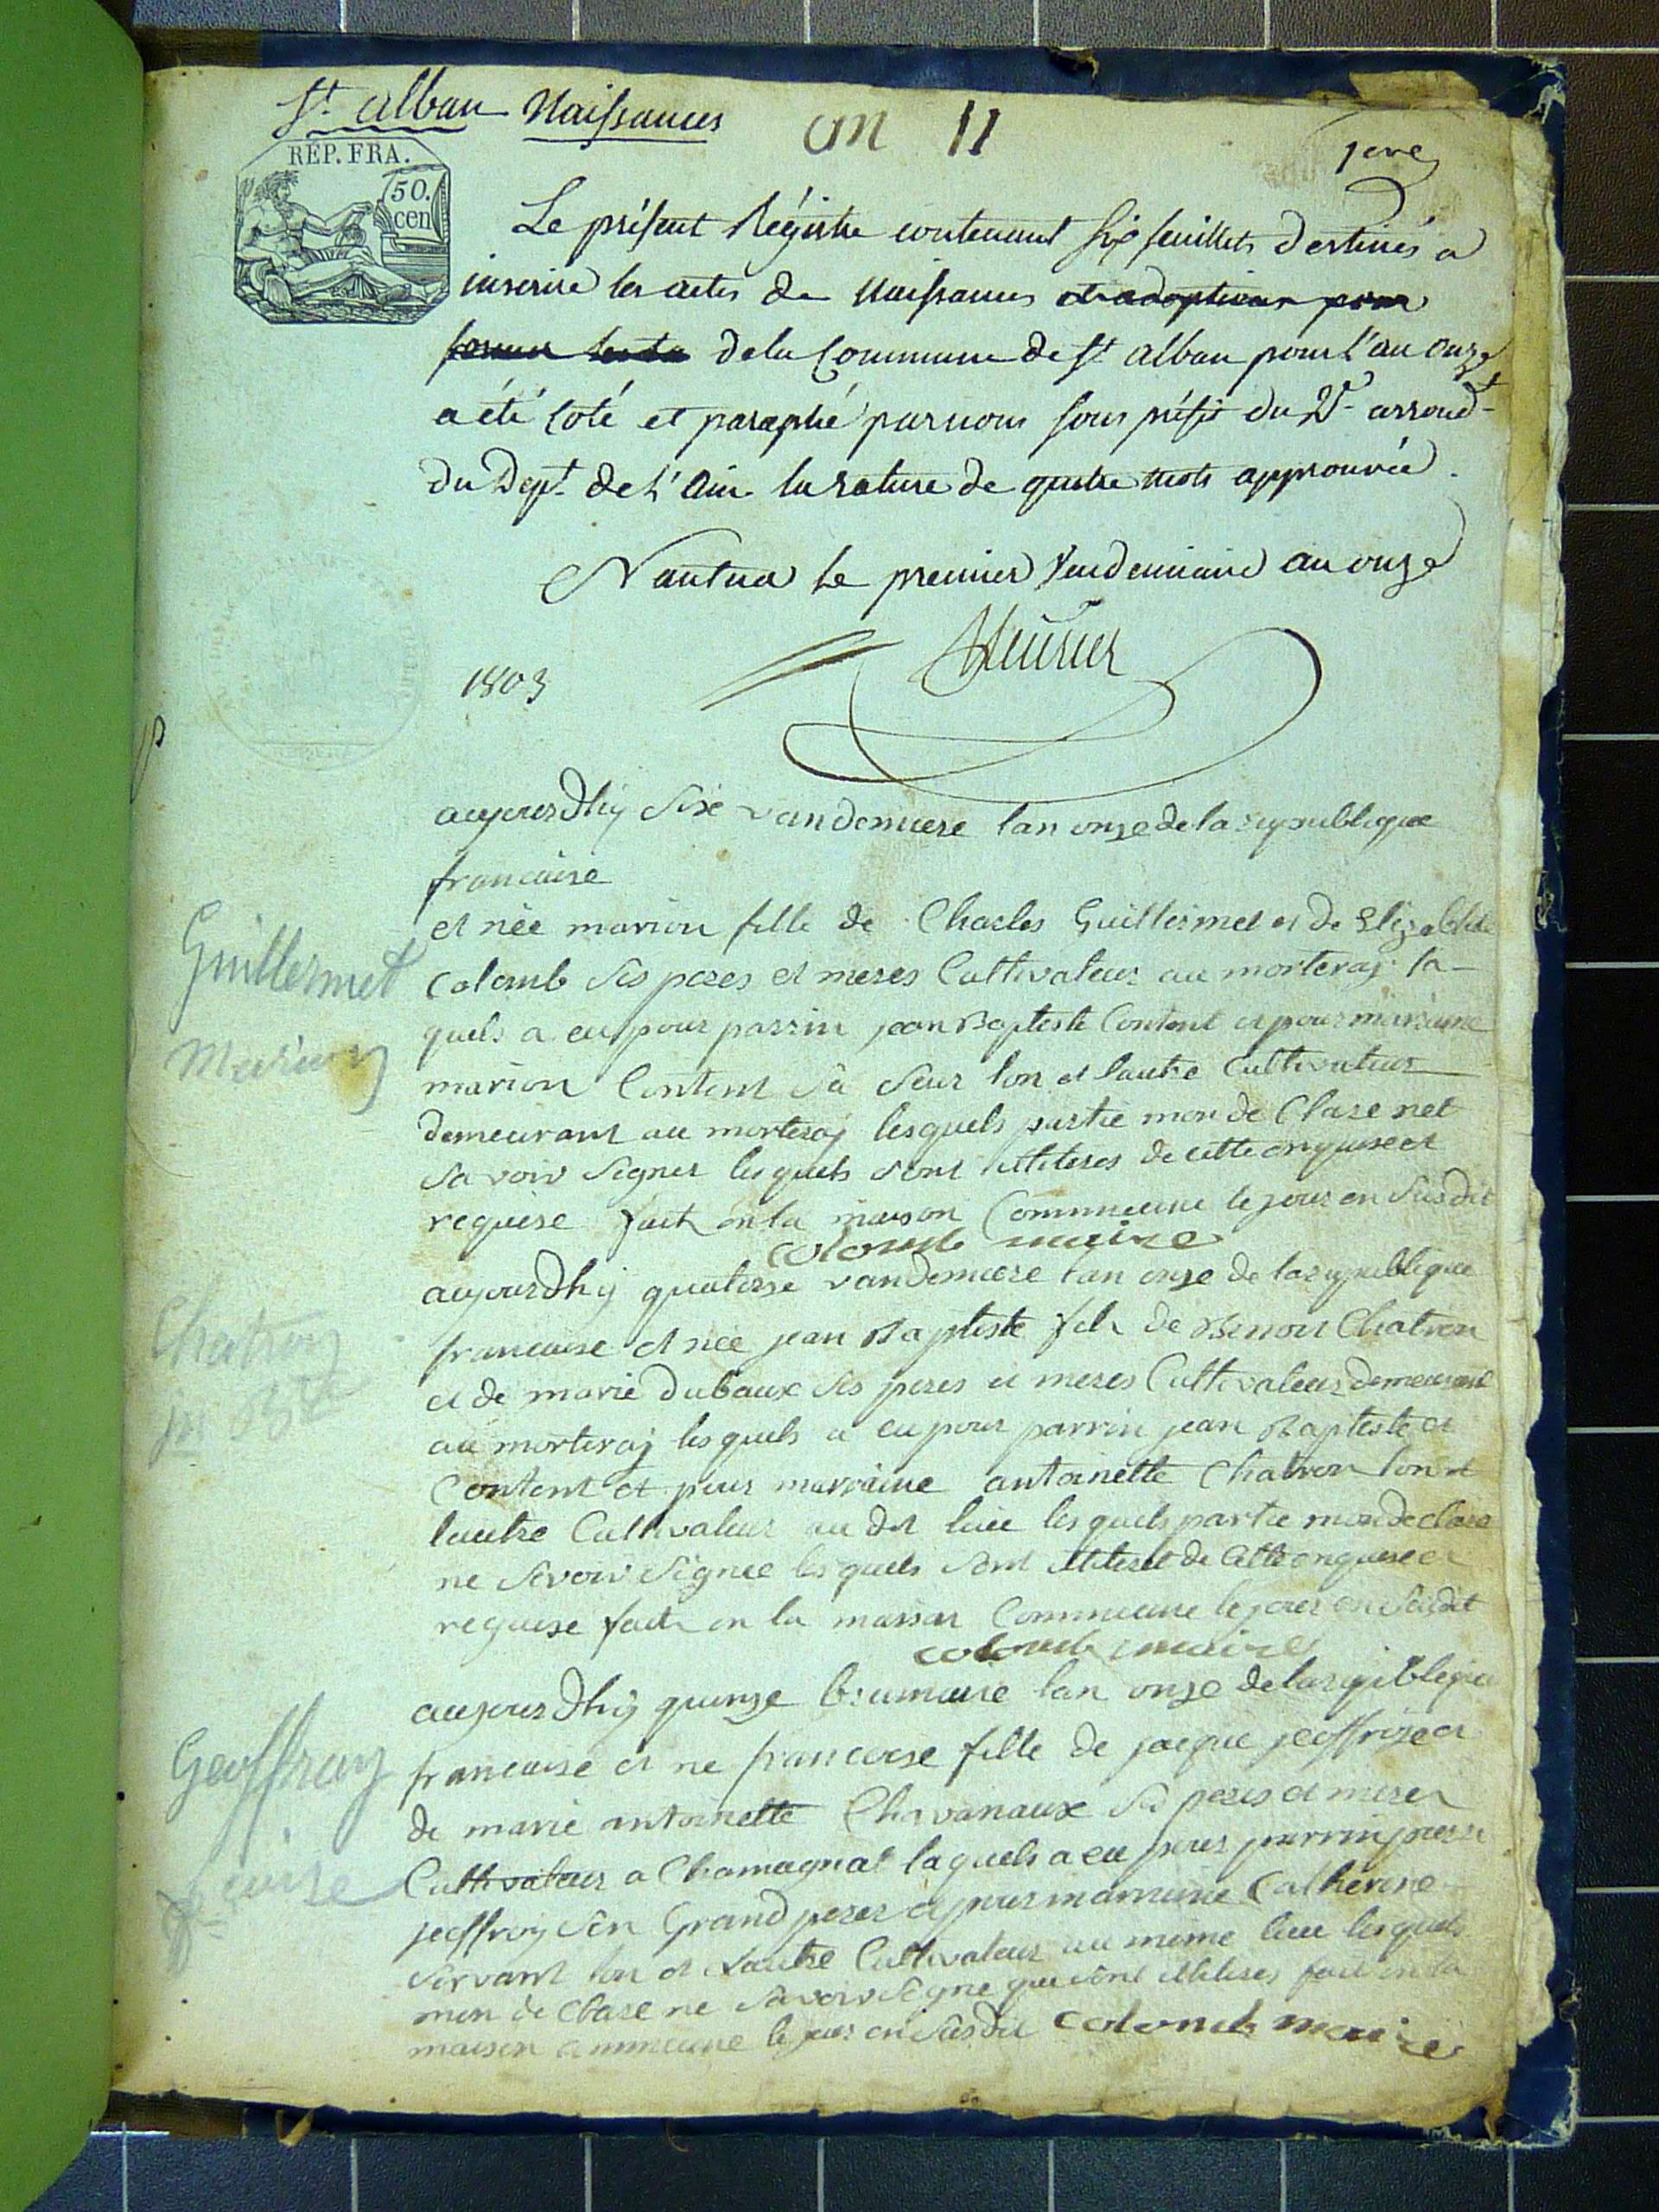 St. alban Naissances an 11
1er
REP. FRA.
50.
cen
Le présent Régistre contenant six feuillets destinés a
inscrire les actes de Naissances et adoptions pour
former
de la Commune de St alban pour l'an onze
a été coté et paraphé par nous sous préfet du 2e arrondt
du Dept. de l'Ain la rature de quatre mots approuvée.
Nantua le premier Vendemiaire an onze
1803
aujourdhÿ sixe vandemiere lan onze de la republique
francaise
et née marion fille de Charles Guillermet et de Elizabethe
Guillermet
Marion
Colomb ses peres et meres Cultivateur au morteraj la-
quels a eu pour parrin jean Baptiste Content et pour marraine
marion Content sa seur lon et lautre Cultivateur
demeurant au morteraj lesquels partie mon de Clare net
savoir signer lesquels sont illiteres de cette enquise et
requise fait en la maison Commeune le jour en susdit
colomb maire
aujourdhÿ quatorse vandemiere lan onze de la republique
francaise et née jean Baptiste fils de Benoit Chatron
Chatron
jn Bte
et de marie dubaux ses peres et meres Cultivateur demeurant
au morteraj lesquels a eu pour parrin jean Baptiste et
Content et pour marraine antoinette Chatron lon et
lautre Cultivateur au dit lieu lesquels partie mon de clare
ne savoir signee lesquels sont illiteret de cette enquise et
requise fait en la maison Commeune le jour en susdit
colomb maire
aujourdhÿ quinze brumaire lan onze de la
francaise et ne francoise fille de jacque jeoffroy et
Geoffray
fcoise
de marie antoinette Chavanaux ses peres et meres
Cultivateur a Chamagnat laquels a eu pour parrin
jeoffroy sen Grand peres et pour marraine Catherine
servant lon et lautre Cultivateur au meme lieu lesquels
mon de Clare ne savoir signe que sont illiteres fait en la
maison commeune le jour en susdit colomb maire